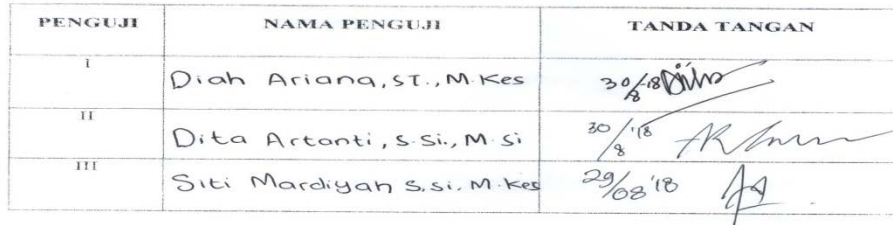 PENGUJI NAMA PENGUJI TANDA TANGAN
I Diah Ariana, ST., M.Kes 30/8-18
II Dita Artanti, S.Si., M.Si 30/8'18
III Siti Mardiyah S,si. M.Kes 29/08'18